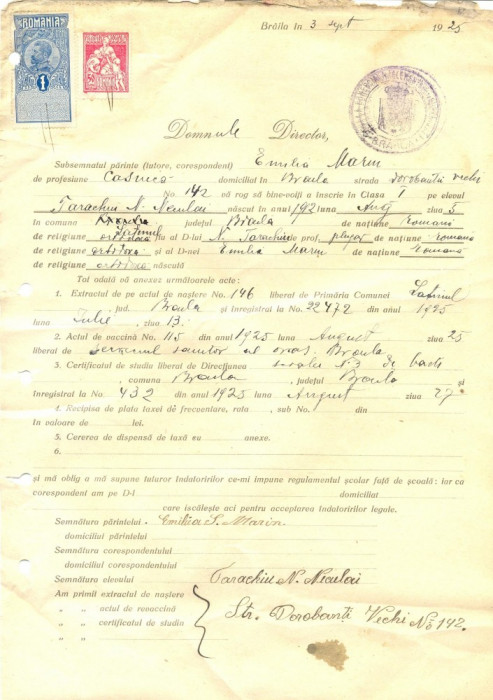 ROMANIA
1
Brăila în 3 sept 1925
Domnule Director,
Subsemnatul părinte (tutore, corespondent) Emilia Marin
de profesiune Casnică domiciliat în Braila strada Dorobanti Vechi
No. 142 vă rog să bine-voiți a înscrie în Clasa I pe elevul
Tarachiu N. Neculai născut în anul 1912 luna Aug ziua 5
în comuna Latinul județul Braila de națiune Romană
de religiune ortodoxa fiu al D-lui N. Tarachiu de prof. plugar de națiune romana
de religiune ortodoxa și al D-nei Emilia Marin de națiune romana
de religiune ortodoxa născută
Tot odată vă anexez următoarele acte:
1. Extractul de pe actul de naștere No 146 liberat de Primăria Comunei Latinul
jud. Braila și înregistrat la No 22472 din anul 1925
luna iulie ziua 13
2. Actul de vaccină No 115 din anul 1925 luna August ziua 25
liberat de serviciul sanitar al oraș. Braila
3. Certificatul de studiu liberat de Direcțiunea scoalei N 3 de baeti
, comuna Braila, județul Braila și
înregistrat la No. 432 din anul 1925 luna August ziua 27
4. Recipisa de plata taxei de frecventare, rata , sub No. din
în valoare de lei.
5. Cererea de dispensă de taxă su anexe.
6.
și mă oblig a mă supune tuturor îndatoririlor ce-mi impune regulamentul școlar față de școală: iar ca
corespondent am pe D-l domiciliat
care iscălește aci pentru acceptarea îndatoririlor legale.
Semnătura părintelui Emilia S. Marin
domiciliul părintelui
Semnătura corespondentului
domiciliul corespondentului
Semnătura elevului Tarachiu N. Neculai
Am primit extractul de naștere
„ „ actul de revaccină Str. Dorobanți Vechi No 142.
„ „ certificatul de studiu
„ „